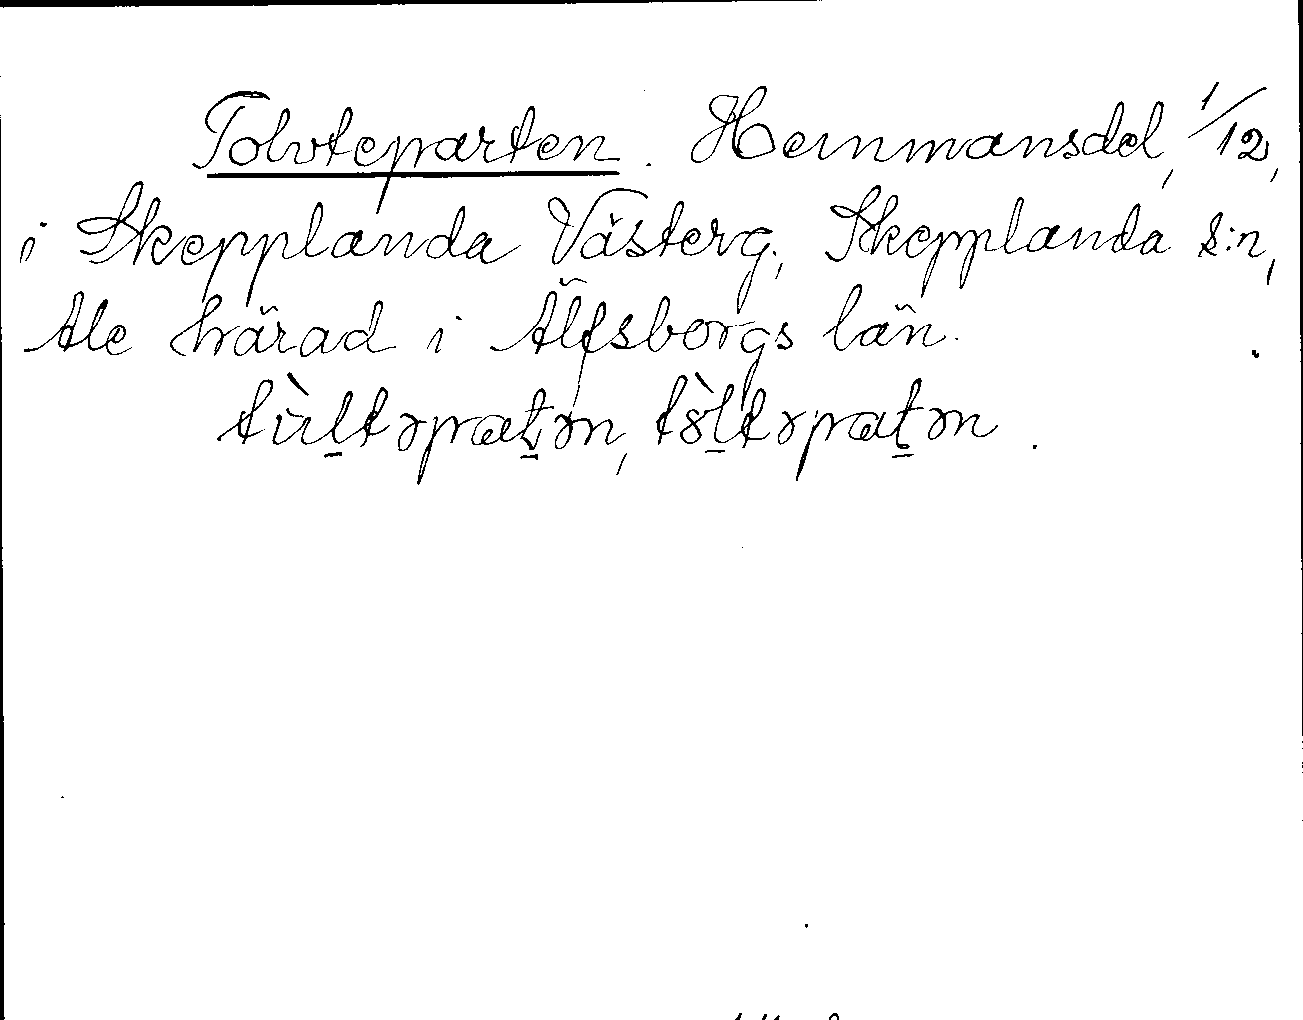 Tolvteparten. Hemmansdel, 1/12,
i Skepplanda Västerg., Skepplanda s:n,
Ale härad i Älfsborgs län.
tùl̠təpat̠ən, tòl̠təpat̠ən.